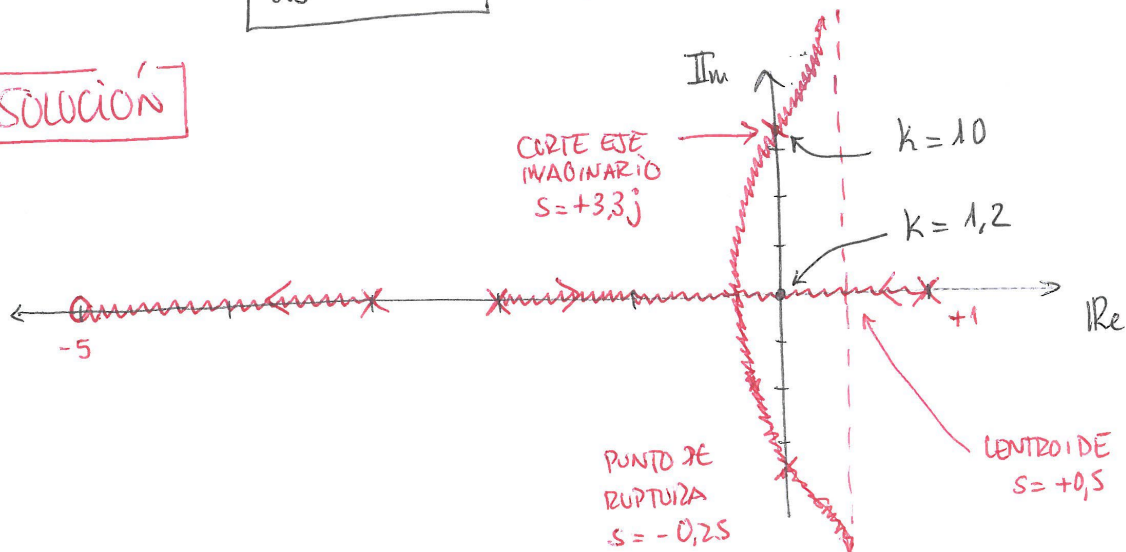 SOLUCIÓN
IIm
CORTE EJE
IMAGINARIO
S=+3,3j
K=10
K=1,2
-5
+1
IRe
PUNTO DE
RUPTURA
S=-0,25
CENTROIDE
S=+0,5